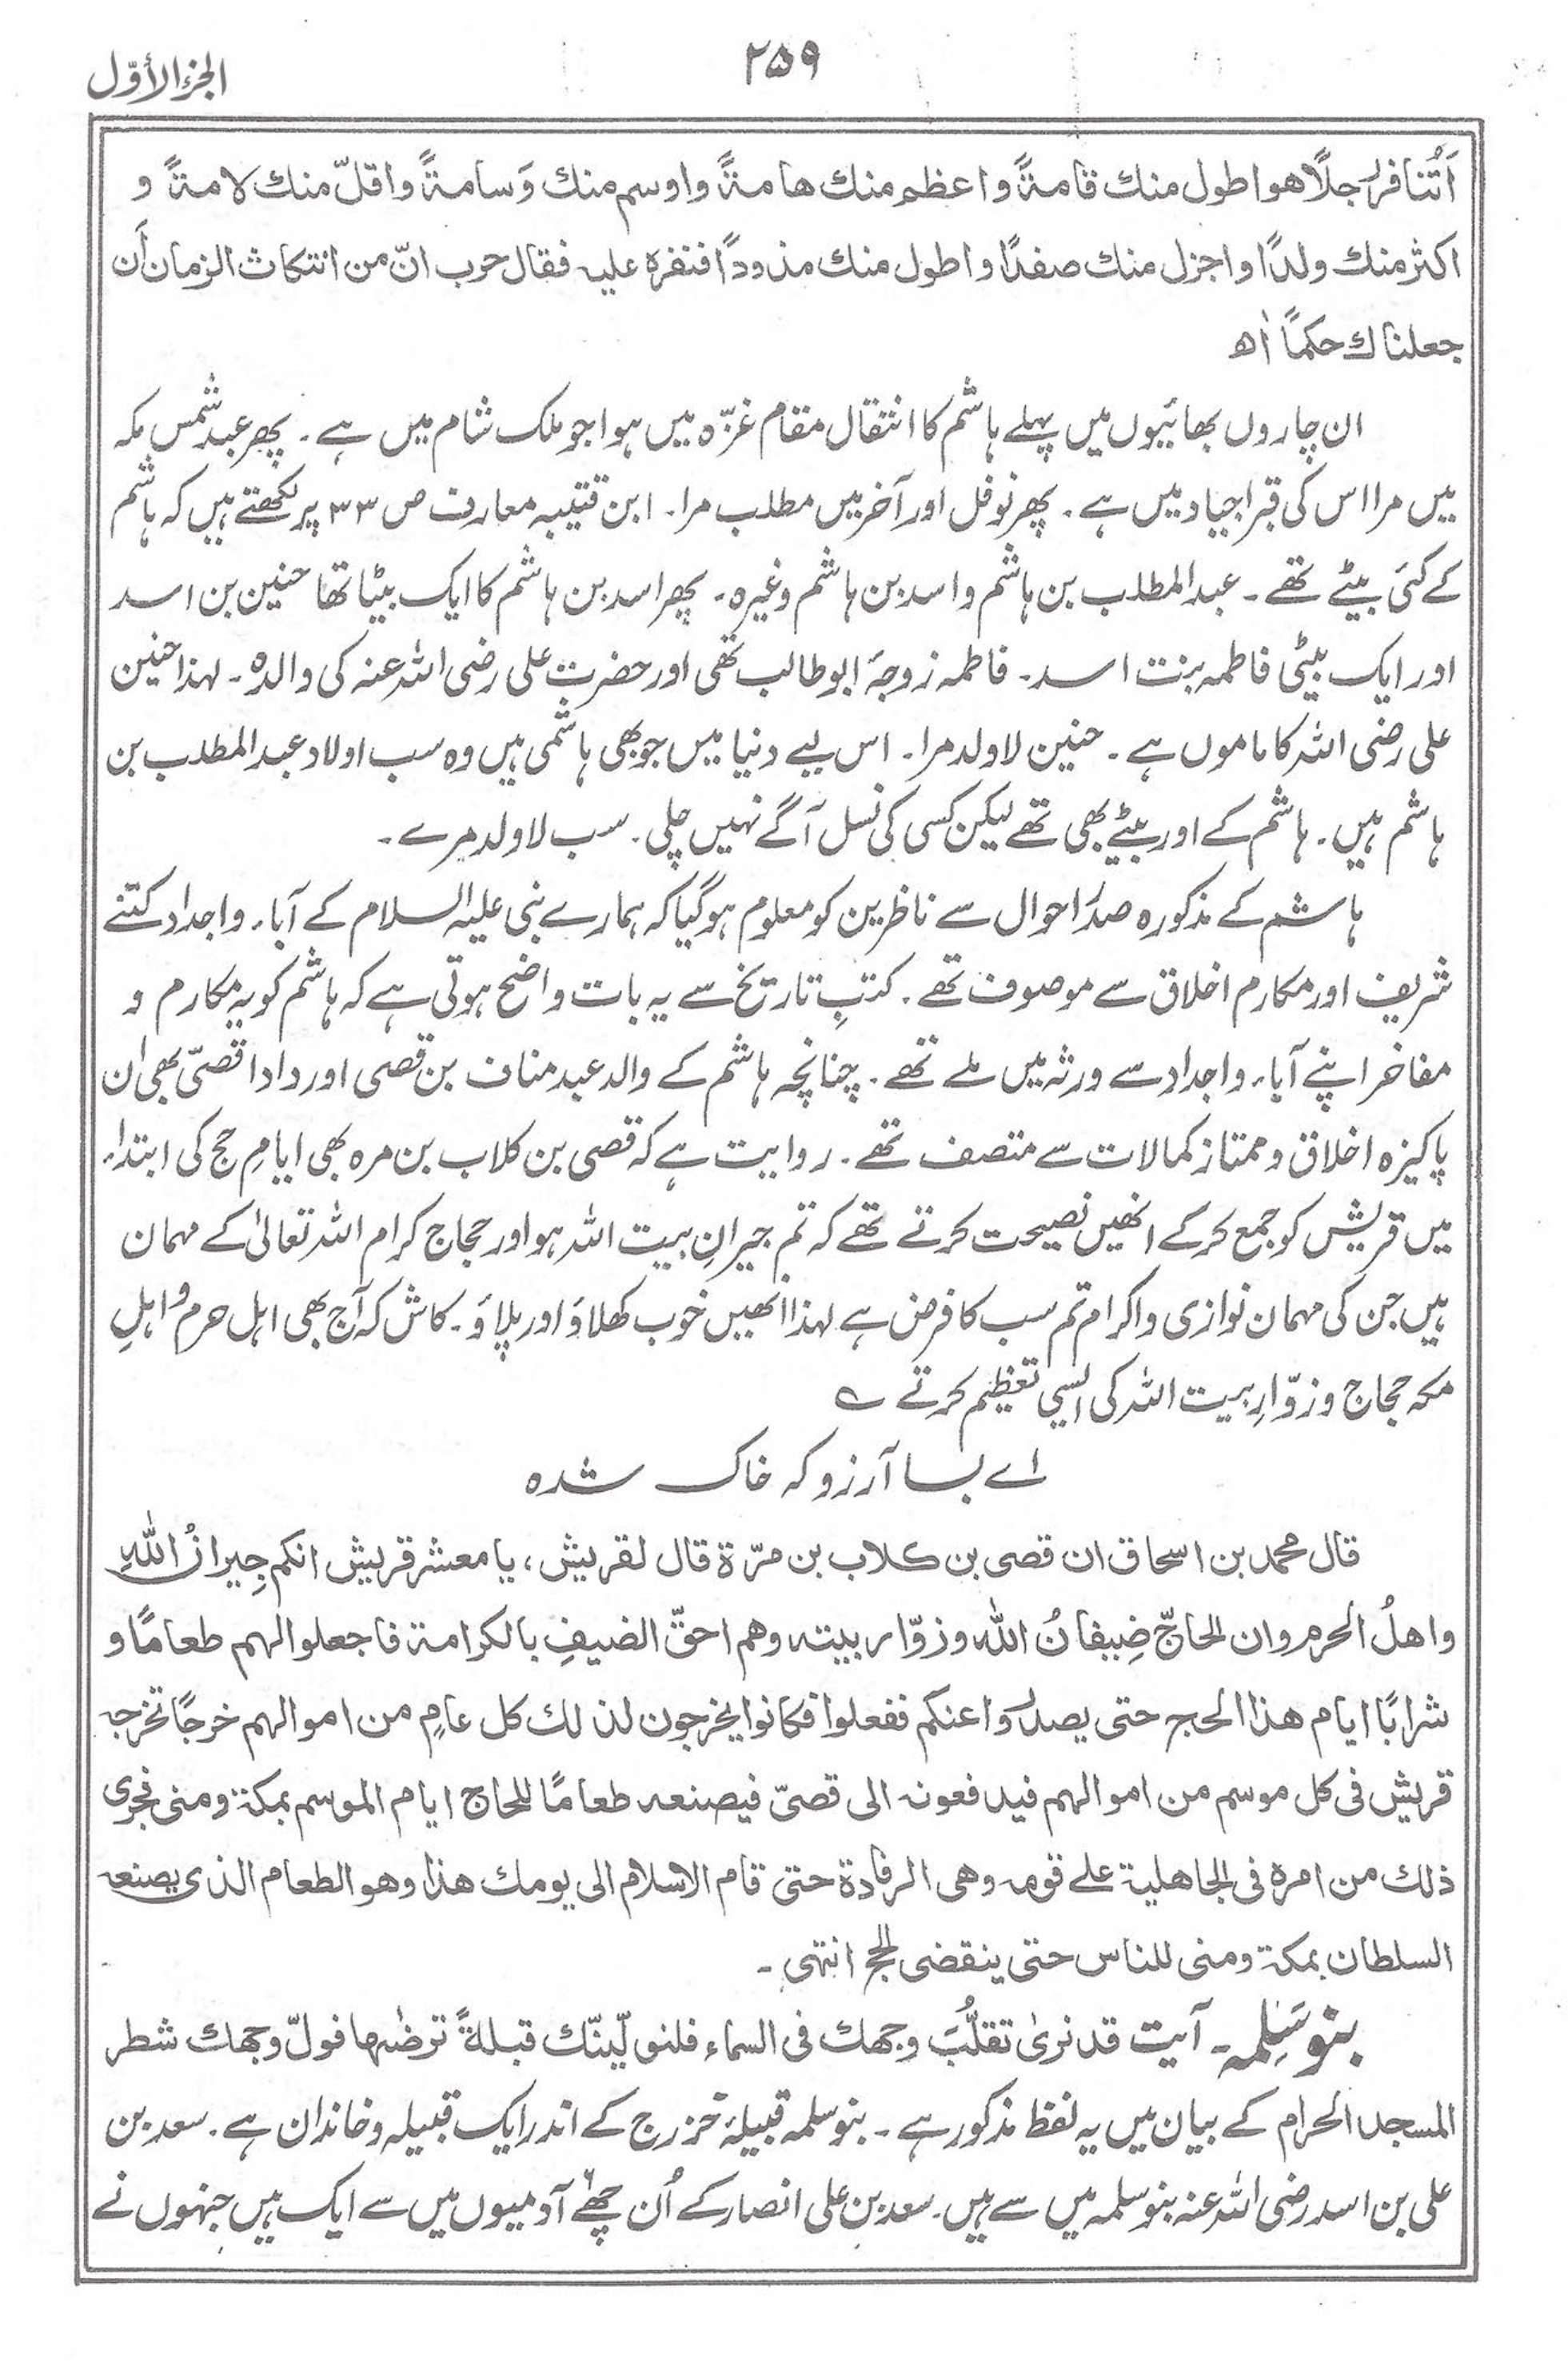 الجزء الأوّل
۲۵۹
أتُنافر رجلًا هو اطول منك قامةً واعظم منك هامةً واوسم منك وَسامةً واقلّ منك لامةً و
اكثر منك ولدًا واجزل منك صفدًا واطول منك مذودًا فنفره عليه فقال حرب انّ من انتكاث الزمان أن
جعلناك حكمًا اھ
ان چاروں بھائیوں میں پہلے ہاشم کا انتقال مقام غزّہ میں ہوا جو ملک شام میں ہے۔ پھر عبد شمس مکہ
میں مرا اس کی قبر اجیاد میں ہے۔ پھر نوفل اور آخر میں مطلب مرا۔ ابن قتیبہ معارف ص ۳۳ پر لکھتے ہیں کہ ہاشم
کے کئی بیٹے تھے۔ عبدالمطلب بن ہاشم و اسد بن ہاشم وغیرہ۔ پھر اسد بن ہاشم کا ایک بیٹا تھا حنین بن اسد
اور ایک بیٹی فاطمہ بنت اسد۔ فاطمہ زوجۂ ابوطالب تھی اور حضرت علی رضی اللہ عنہ کی والدہ۔ لہذا حنین
علی رضی اللہ کا ماموں ہے۔ حنین لاولد مرا۔ اس لیے دنیا میں جو بھی ہاشمی ہیں وہ سب اولاد عبدالمطلب بن
ہاشم ہیں۔ ہاشم کے اور بیٹے بھی تھے لیکن کسی کی نسل آگے نہیں چلی۔ سب لاولد مرے۔
ہاشم کے مذکورہ صدر احوال سے ناظرین کو معلوم ہوگیا کہ ہمارے نبی علیہ السلام کے آباء واجداد کتنے
شریف اور مکارم اخلاق سے موصوف تھے۔ کتبِ تاریخ سے یہ بات واضح ہوتی ہے کہ ہاشم کو یہ مکارم و
مفاخر اپنے آباء واجداد سے ورثہ میں ملے تھے۔ چنانچہ ہاشم کے والد عبد مناف بن قصی اور دادا قصیّ بھی ان
پاکیزہ اخلاق و ممتاز کمالات سے متصف تھے۔ روایت ہے کہ قصی بن کلاب بن مرہ بھی ایامِ حج کی ابتداء
میں قریش کو جمع کرکے انھیں نصیحت کرتے تھے کہ تم جیرانِ بیت اللہ ہو اور حجاج کرام اللہ تعالیٰ کے مہمان
ہیں جن کی مہمان نوازی و اکرام تم سب کا فرض ہے لہذا انھیں خوب کھلاؤ اور پلاؤ۔ کاش کہ آج بھی اہل حرم و اہلِ
مکہ حجاج و زوّارِ بیت اللہ کی ایسی تعظیم کرتے ؎
اے بسا آرزو کہ خاک شدہ
قال محمد بن اسحاق ان قصی بن كلاب بن مرّة قال لقريش، يا معشر قريش انكم جِيرانُ اللهِ
واهلُ الحرم وان الحاجّ ضِيفانُ الله وزوّار بيته وهم احقّ الضيفِ بالكرامة فاجعلوا لهم طعامًا و
شرابًا ايام هذا الحج حتى يصدروا عنكم ففعلوا فكانوا يخرجون لذلك كل عامٍ من اموالهم خرجًا تخرجه
قريش فى كل موسم من اموالهم فيدفعونه الى قصىّ فيصنعه طعامًا للحاج ايام الموسم بمكة ومنى فجرى
ذلك من امره فى الجاهلية على قومه وهى الرفادة حتى قام الاسلام الى يومك هذا وهو الطعام الذى يصنعه
السلطان بمكة ومنى للناس حتى ينقضى الحج انتهى۔
بنو سَلِمہ۔ آیت قد نرىٰ تقلُّبَ وجهك فى السماء فلنولّينّك قبلةً ترضٰها فولّ وجهك شطر
المسجد الحرام کے بیان میں یہ لفظ مذکور ہے۔ بنو سلمہ قبیلۂ خزرج کے اندر ایک قبیلہ و خاندان ہے۔ سعد بن
علی بن اسد رضی اللہ عنہ بنو سلمہ میں سے ہیں۔ سعد بن علی انصار کے اُن چھے آدمیوں میں سے ایک ہیں جنہوں نے